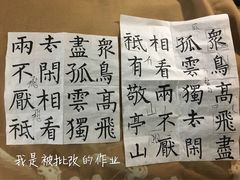 衆鳥高飛盡
孤雲獨去閑
相看兩不厭
祗有敬亭山
衆鳥高飛
盡孤雲獨
去閑相看
兩不厭祗
我是被批改的作业